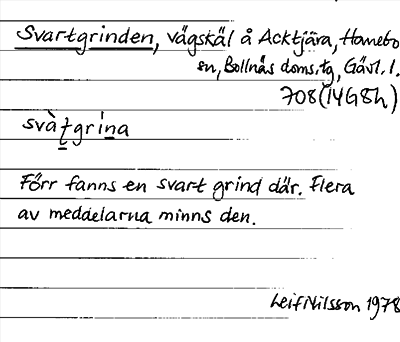 Svartgrinden, vägskäl å Acktjära, Hanebo
sn, Bollnäs doms.tg, Gävl. l.
708(14G8h)
svàt̲grín̲a
Förr fanns en svart grind där. Flera
av meddelarna minns den.
Leif Nilsson 1978